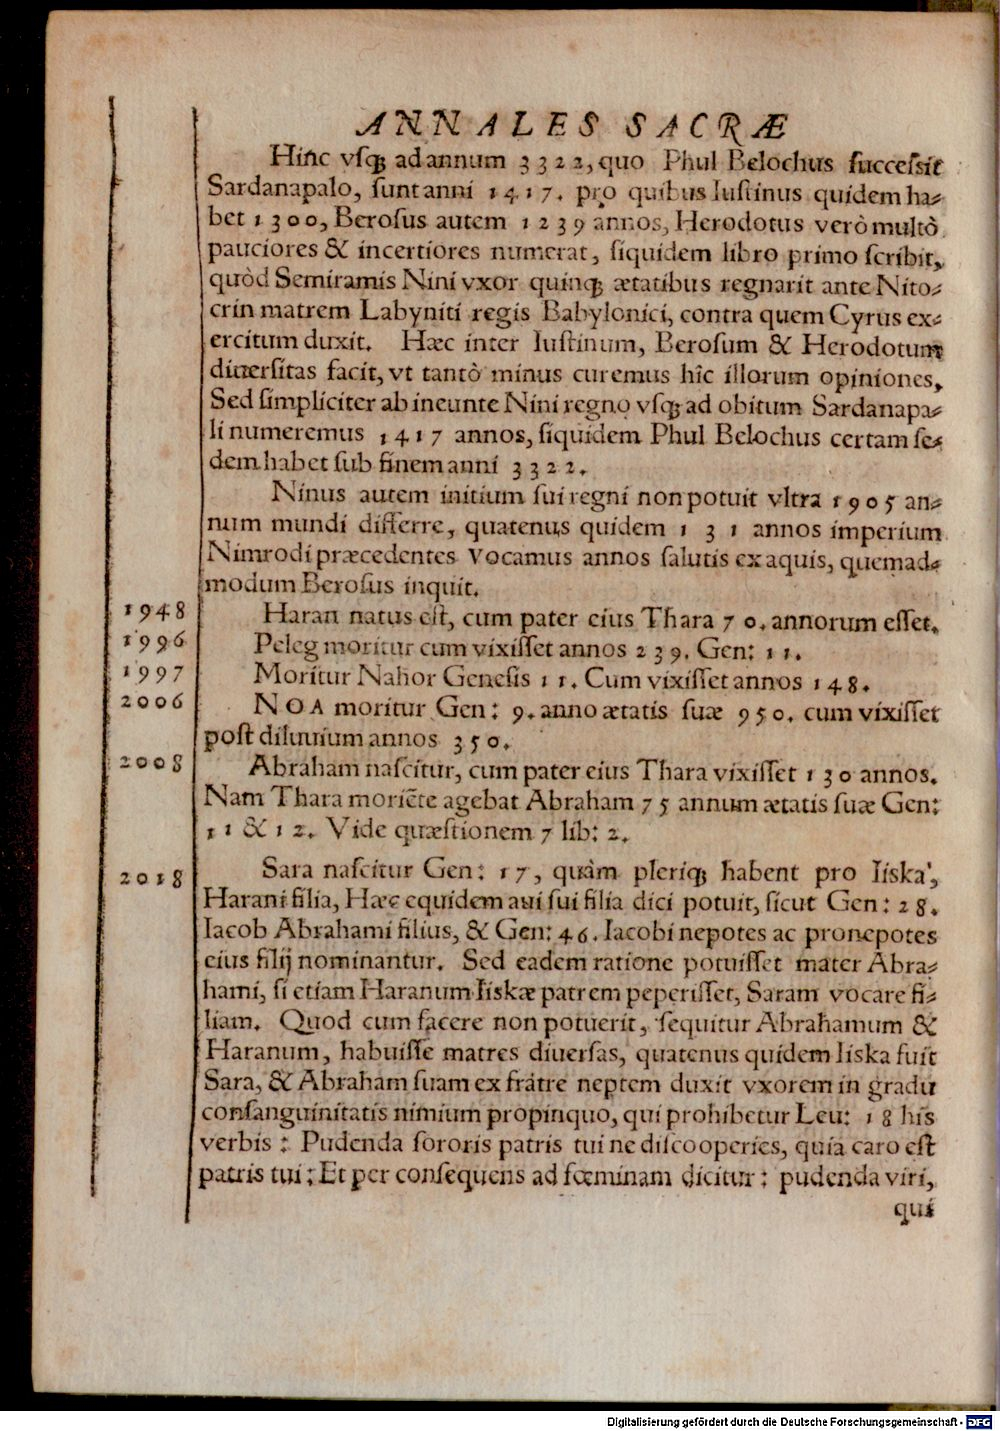 ANNALES SACRÆ
Hinc vsq; ad annum 3322, quo Phul Belochus successit
Sardanapalo, sunt anni 1417. pro quibus Iustinus quidem ha-
bet 1300, Berosus autem 1239 annos, Herodotus verò multò
pauciores & incertiores numerat, siquidem libro primo scribit,
quòd Semiramis Nini vxor quinq; ætatibus regnarit ante Nito-
crin matrem Labyniti regis Babylonici, contra quem Cyrus ex-
ercitum duxit. Hæc inter Iustinum, Berosum & Herodotum
diuersitas facit, vt tantò minus curemus hîc illorum opiniones,
Sed simpliciter ab ineunte Nini regno vsq; ad obitum Sardanapa-
li numeremus 1417 annos, siquidem Phul Belochus certam se-
dem habet sub finem anni 3322.
Ninus autem initium sui regni non potuit vltra 1905 an-
num mundi differre, quatenus quidem 131 annos imperium
Nimrodi præcedentes vocamus annos salutis ex aquis, quemad-
modum Berosus inquit.
1948 Haran natus est, cum pater eius Thara 70. annorum esset.
1996 Peleg moritur cum vixisset annos 239. Gen: 11.
1997 Moritur Nahor Genesis 11. Cum vixisset annos 148.
2006 NOA moritur Gen: 9. anno ætatis suæ 950. cum vixisset
post diluuium annos 350.
2008 Abraham nascitur, cum pater eius Thara vixisset 130 annos.
Nam Thara moriēte agebat Abraham 75 annum ætatis suæ Gen:
11 & 12. Vide quæstionem 7 lib: 2.
2018 Sara nascitur Gen: 17, quàm pleriq; habent pro Iiska,
Harani filia, Hæc equidem aui sui filia dici potuit, sicut Gen: 28.
Iacob Abrahami filius, & Gen: 46. Iacobi nepotes ac pronepotes
eius filij nominantur. Sed eadem ratione potuisset mater Abra-
hami, si etiam Haranum Iiskæ patrem peperisset, Saram vocare fi-
liam. Quod cum facere non potuerit, sequitur Abrahamum &
Haranum, habuisse matres diuersas, quatenus quidem Iiska fuit
Sara, & Abraham suam ex frátre neptem duxit vxorem in gradu
consanguinitatis nimium propinquo, qui prohibetur Leu: 18 his
verbis: Pudenda sororis patris tui ne discooperies, quia caro est
patris tui: Et per consequens ad fœminam dicitur: pudenda viri,
qui
Digitalisierung gefördert durch die Deutsche Forschungsgemeinschaft - DFG